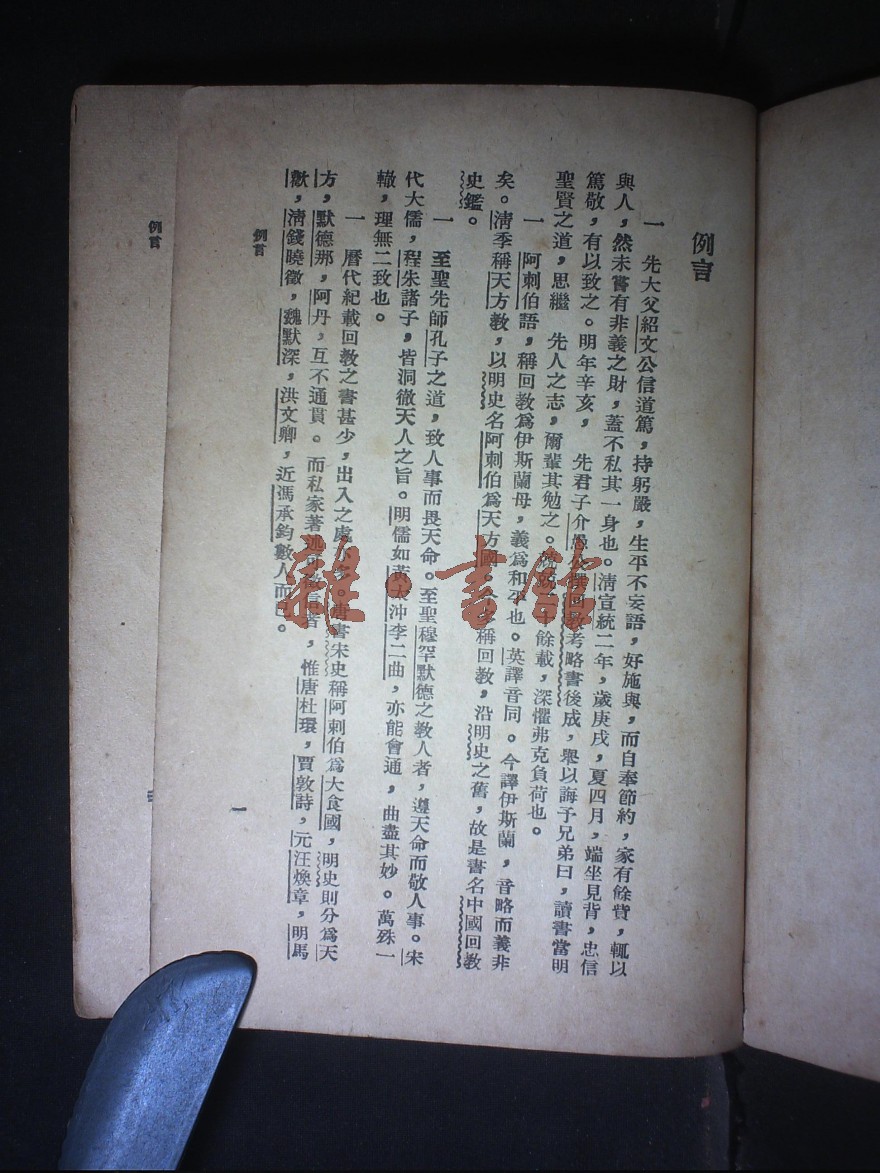 例言
一 先大父紹文公信道篤，持躬嚴，生平不妄語，好施與，而自奉節約，家有餘貲，輒以
與人，然未嘗有非義之財，蓋不私其一身也。清宣統二年，歲庚戌，夏四月，端坐見背，忠信
篤敬，有以致之。明年辛亥， 先君子介愚公撰回教考略書後成，舉以誨予兄弟曰，讀書當明
聖賢之道，思繼 先人之志，爾輩其勉之。餘載，深懼弗克負荷也。
一 阿剌伯語，稱回教爲伊斯蘭母，義爲和平也。英譯音同。今譯伊斯蘭，音略而義非
矣。清季稱天方教，以明史名阿剌伯爲天方國。稱回教，沿明史之舊，故是書名中國回教
史鑑。
一 至聖先師孔子之道，致人事而畏天命。至聖穆罕默德之教人者，遵天命而敬人事。宋
代大儒，程朱諸子，皆洞徹天人之旨。明儒如黃太冲李二曲，亦能會通，曲盡其妙。萬殊一
轍，理無二致也。
一 曆代紀載回教之書甚少，出入之處亦多。唐書宋史稱阿剌伯爲大食國，明史則分爲天
方，默德那，阿丹，互不通貫。而私家著述可徵信者，惟唐杜環，賈敦詩，元汪煥章，明馬
歡，清錢曉徵，魏默深，洪文卿，近馮承鈞數人而已。
例言
一
例言
雜·書館